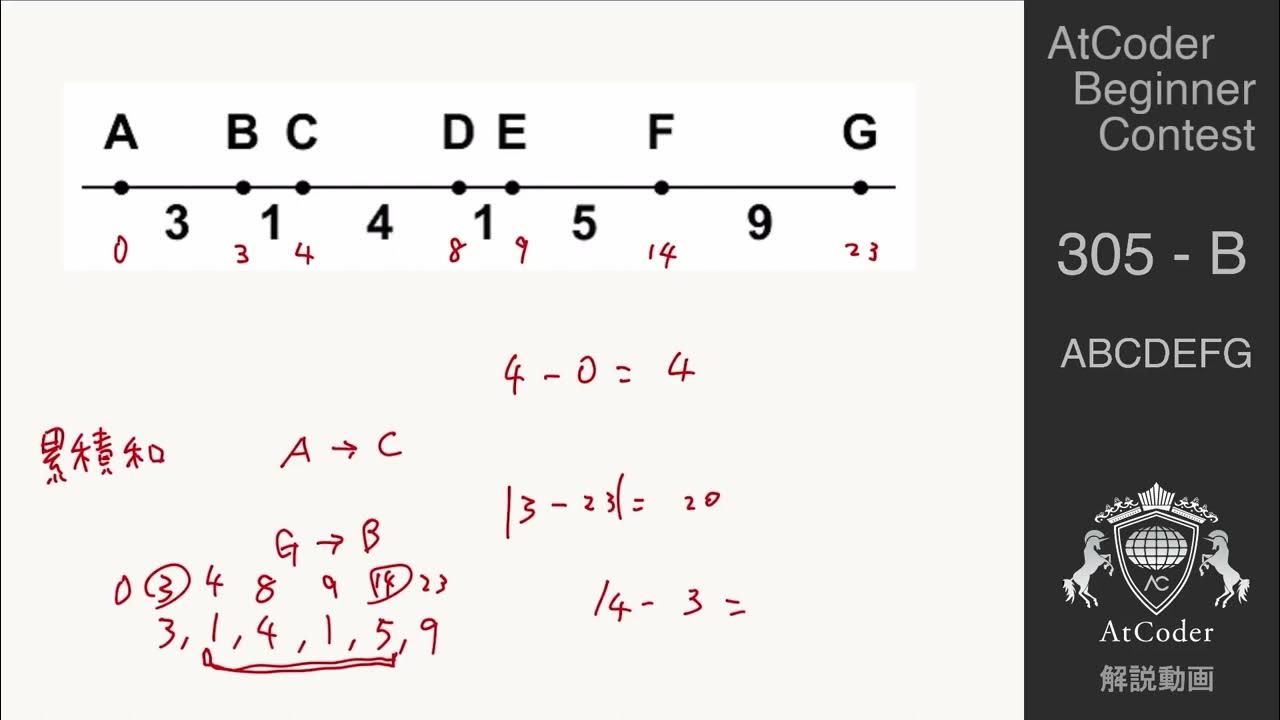 A B C D E F G
3 1 4 1 5 9
0 3 4 8 9 14 23
4 - 0 = 4
累積和
A → C
|3 - 23| = 20
G → B
0 3 4 8 9 14 23
3, 1, 4, 1, 5, 9
14 - 3 =
AtCoder
Beginner
Contest
305 - B
ABCDEFG
AC
AtCoder
解説動画